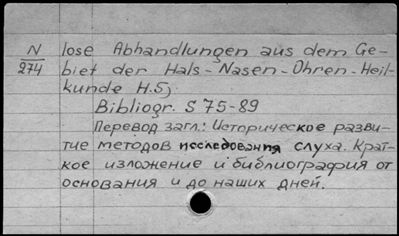 N lose Abhandlungen aus dem Ge-
274 biet der Hals-Nasen-Ohren-Heil-
kunde H.5).
Bibliogr. S 75-89
Перевод загл.: Историческое разви-
тие методов исследования слуха. Крат-
кое изложение и библиография от
основания и до наших дней.